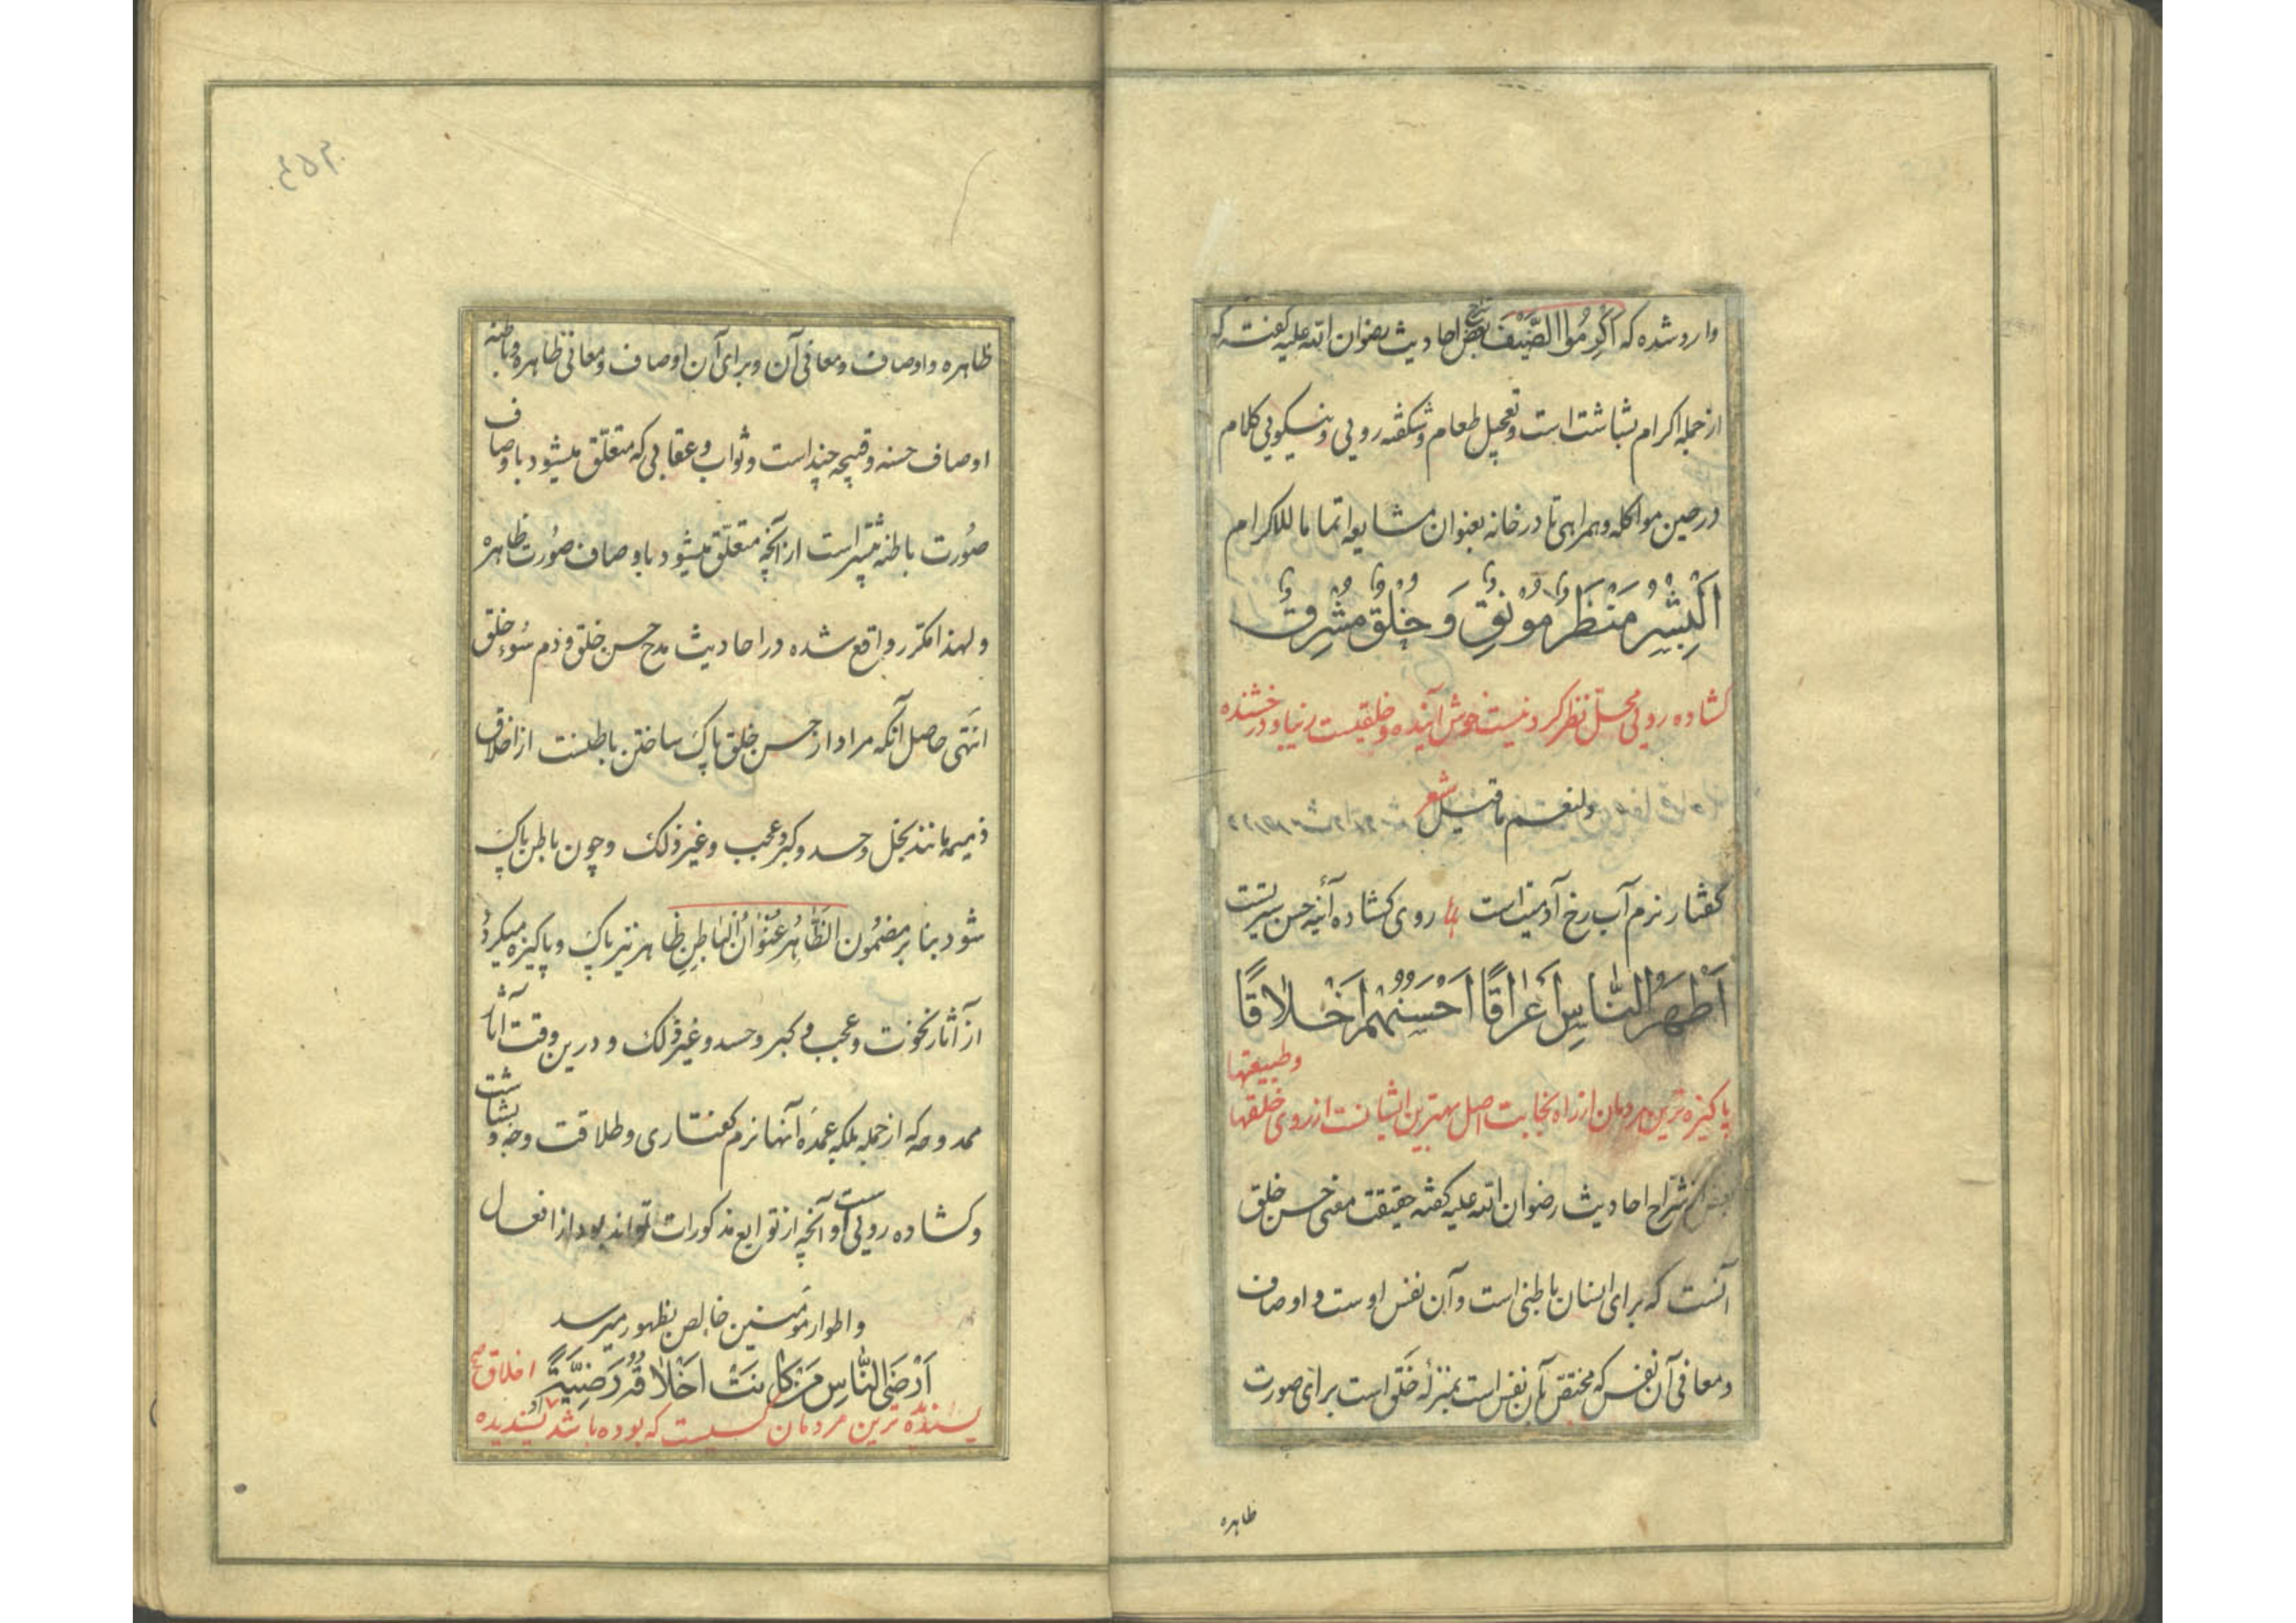 وارد شده که اکرموا الضیف بعض شراح احادیث رضوان الله علیه گفته که
از جمله اکرام بشاشت است و تعجیل طعام و شکفته رویی و نیکویی کلام
در حین مواکله و همراهی تا در خانه بعنوان مشایعه اتماما للاکرام
اَلْبِشْرُ مَنْظَرٌ مُونِقٌ وَ خُلُقٌ مُشْرِقٌ
کشاده رویی محل نظر کردنیست خوش آینده و خلقیست زیبا و درخشنده
ولنعم ما قیل شعر
گفتار نرم آب رخ آدمیت است روی کشاده آئینه حسن سیرتست
اَطْهَرُ النّاسِ اَعْراقًا اَحْسَنُهُمْ اَخْلاقًا
پاکیزه ترین مردمان از راه نجابت اصل بهترین ایشانست از روی خلقها
وطبیعتها
بعض شراح احادیث رضوان الله علیه گفته حقیقت معنی حسن خلق
آنست که برای انسان باطنی است و آن نفس اوست و اوصاف
و معانی آن نفس که مختص بآن نفس است بمنزلهٔ خَلق است برای صورت
ظاهره
ظاهره و اوصاف و معانی آن و برای آن اوصاف و معانی ظاهره و باطنه
اوصاف حسنه و قبیحه چند است و ثواب و عقابی که متعلّق میشود باوصاف
صُورت باطنه بیشتر است از آنچه متعلّق میشود باوصاف صُورت ظاهره
و لهذا مکرّر واقع شده در احادیث مدح حسن خلق و ذم سُوء خلق
انتَهی حاصل آنکه مراد از حسن خلق پاک ساختن باطنست از اخلاق
ذمیمه مانند بخل و حسد و کبر و عجب و غیر ذلک و چون باطن پاک
شود بنا بر مضمُون الظّاهِرُ عُنْوانُ الباطِنِ ظاهر نیز پاک و پاکیزه میکردد
از آثار نخوت و عجب و کبر و حسد و غیر ذلک و درین وقت آثار
ممدوحه که از جمله بلکه عمدهٔ آنها نرم گفتاری و طلاقت وجه و بشاشت
و کشاده رویی است و آنچه از توابع مذکورات تواند بود از افعال
و اطوار مؤمنین خالص بظهور میرسد
اَرْضَی النّاسِ مَنْ کانَتْ اَخْلاقُهُ رَضِیَّةً
پسندیده ترین مردمان کسیست که بوده باشد پسندیده
اخلاق او صح